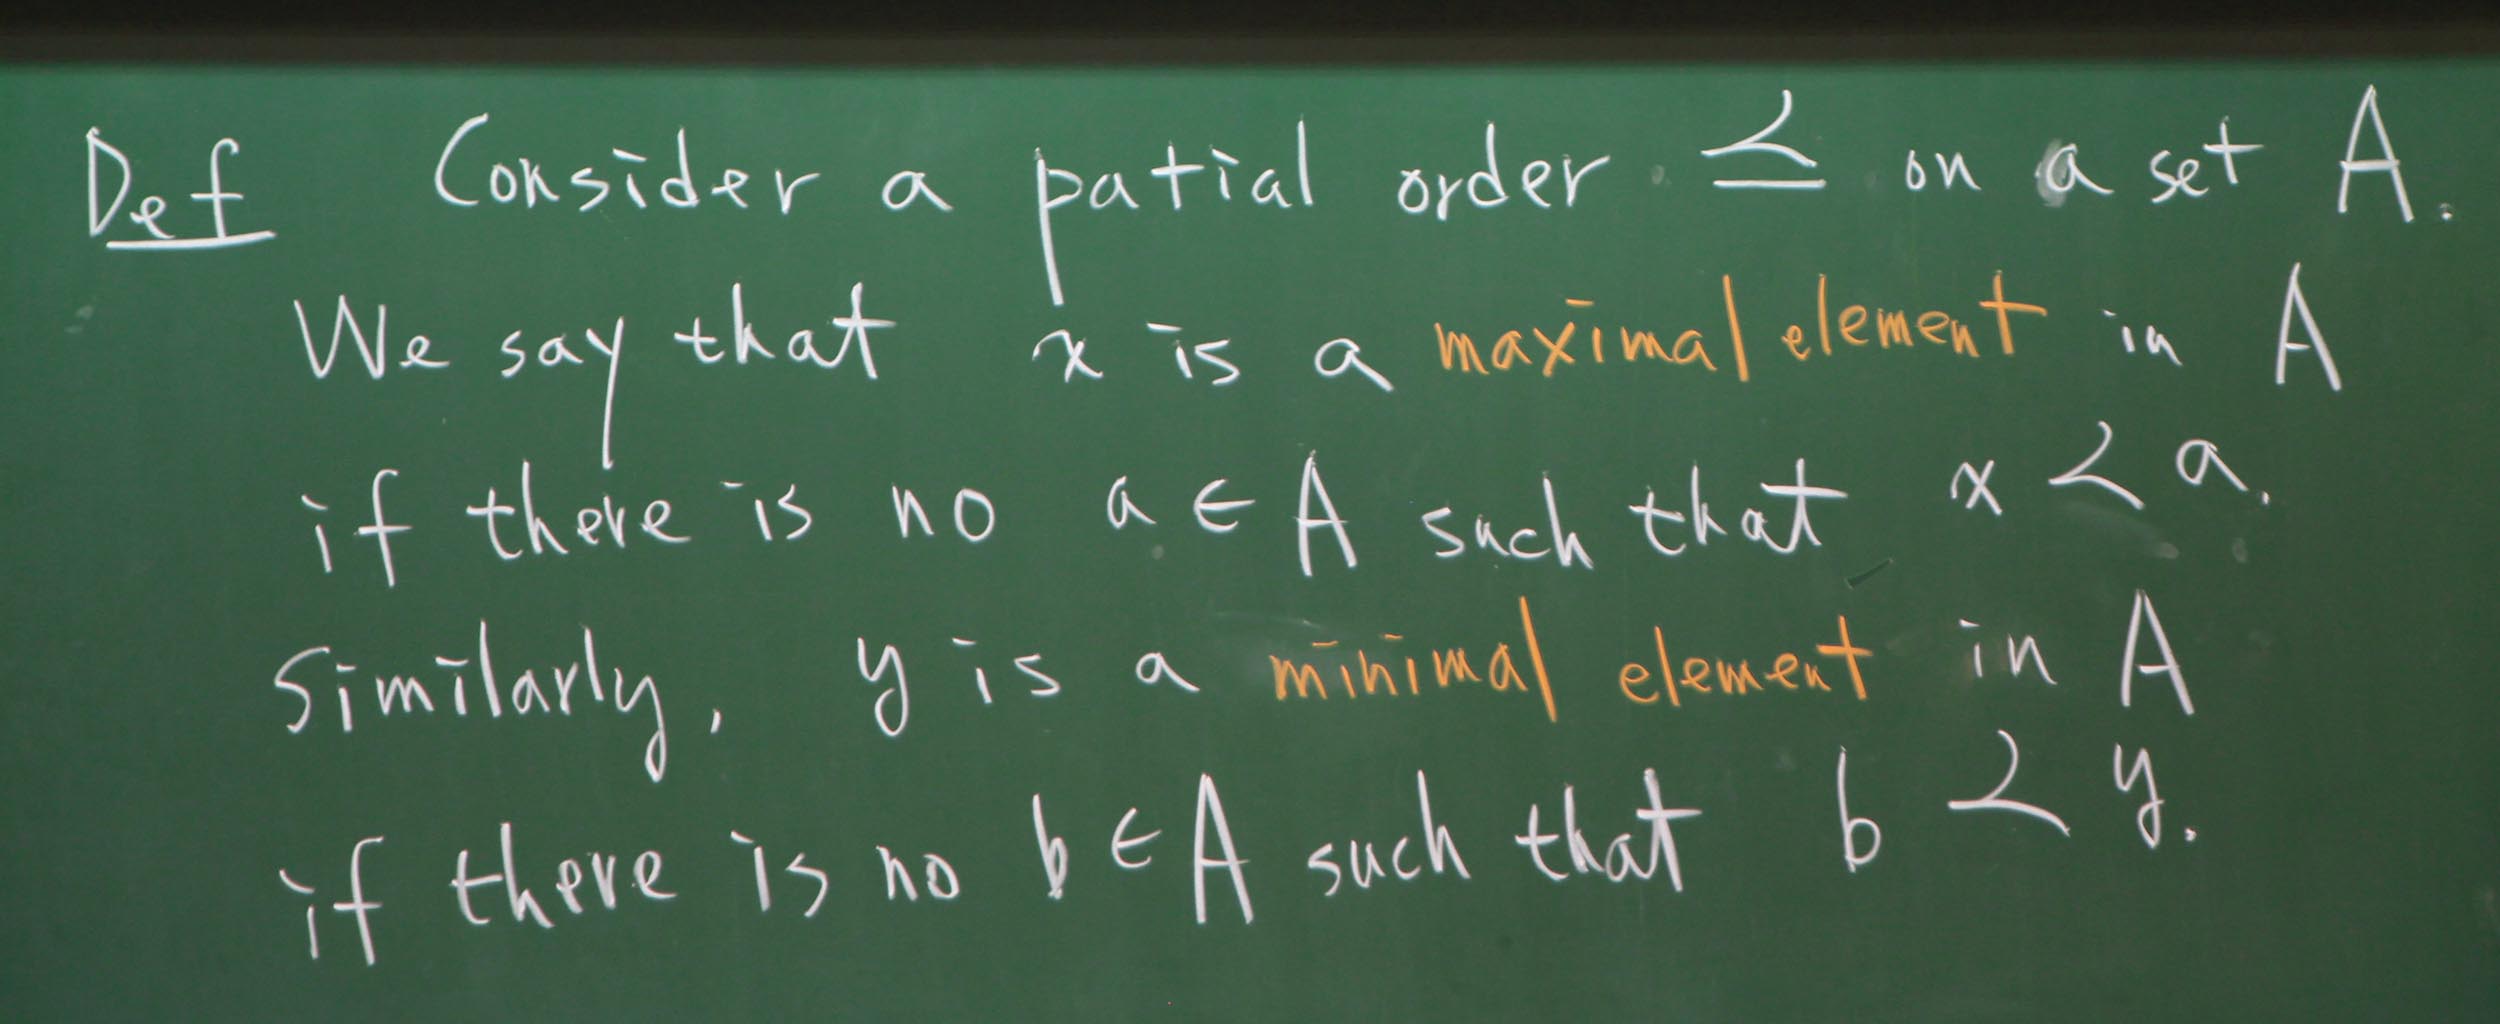 Def Consider a patial order ⪯ on a set A.
We say that x is a maximal element in A
if there is no a ∈ A such that x ≺ a.
Similarly, y is a minimal element in A
if there is no b ∈ A such that b ≺ y.